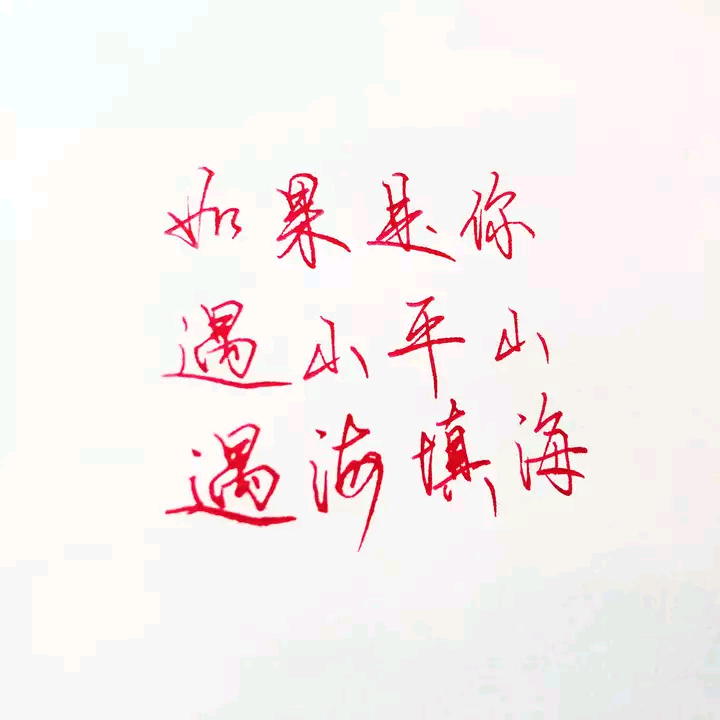 如果是你
遇山平山
遇海填海